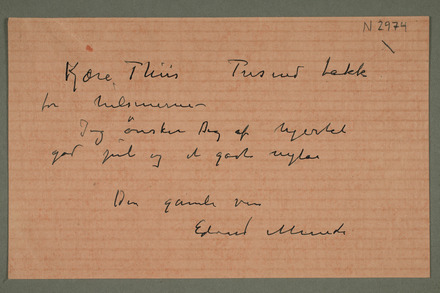 N 2974
Kjære Thiis Tusind takk
for hilsenerne –
Jeg ønsker Dig af hjertet
god jul og et godt nytaar
Din gamle ven
Edvard Munch